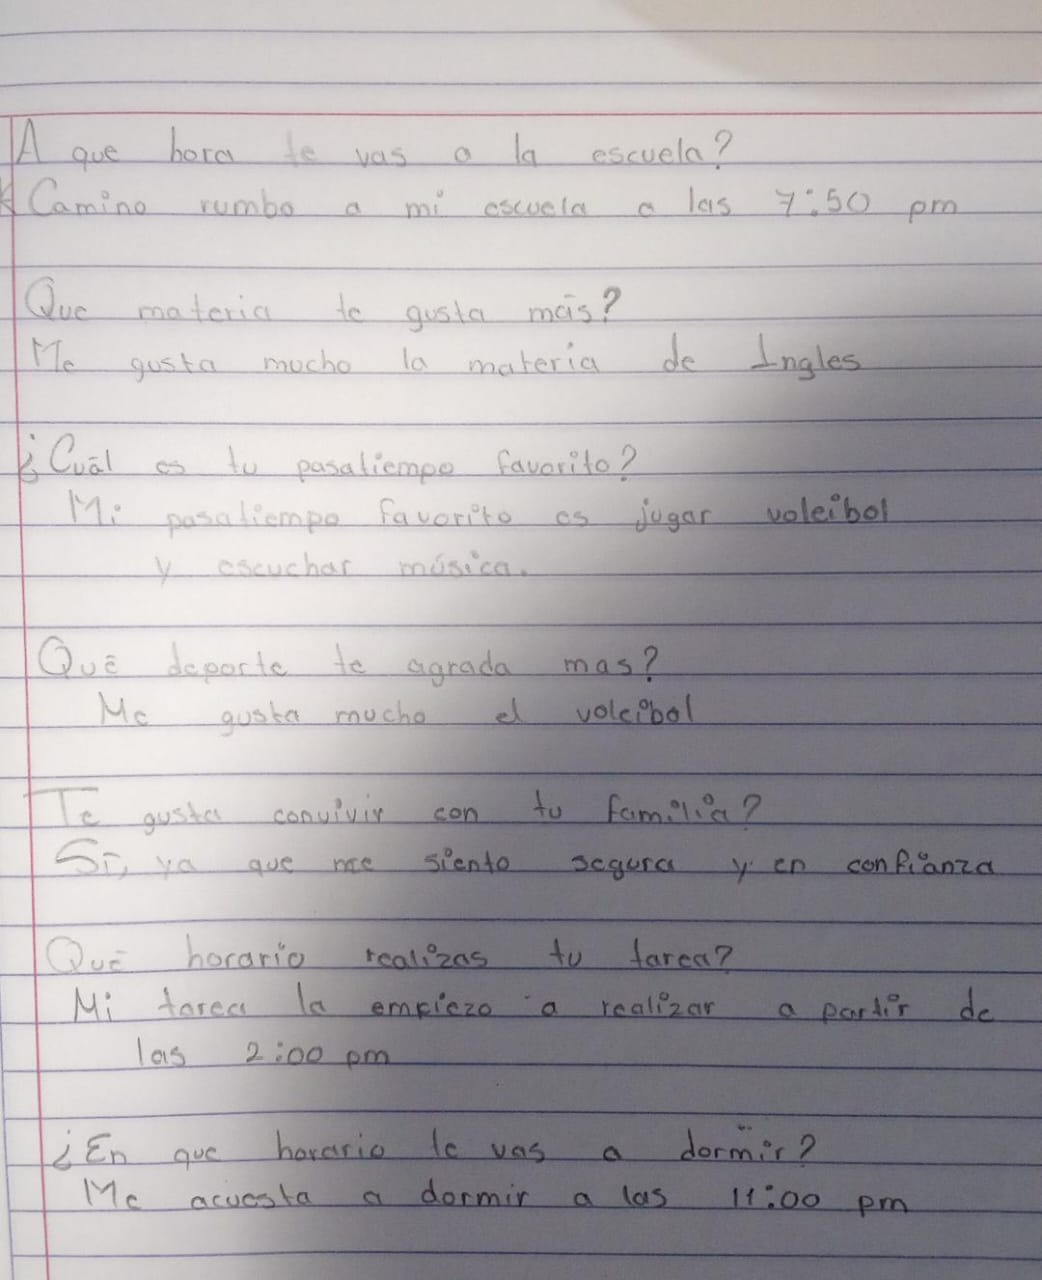 A que hora te vas a la escuela?
Camino rumbo a mi escuela a las 7:50 pm
Que materia te gusta más?
Me gusta mucho la materia de Ingles
¿Cuál es tu pasatiempo favorito?
Mi pasatiempo favorito es jugar voleibol
y escuchar música.
Qué deporte te agrada mas?
Me gusta mucho el voleibol
Te gusta convivir con tu familia?
Sí, ya que me siento segura y en confianza
Qué horario realizas tu tarea?
Mi tarea la empiezo a realizar a partir de
las 2:00 pm
¿En que horario te vas a dormir?
Me acuesta a dormir a las 11:00 pm